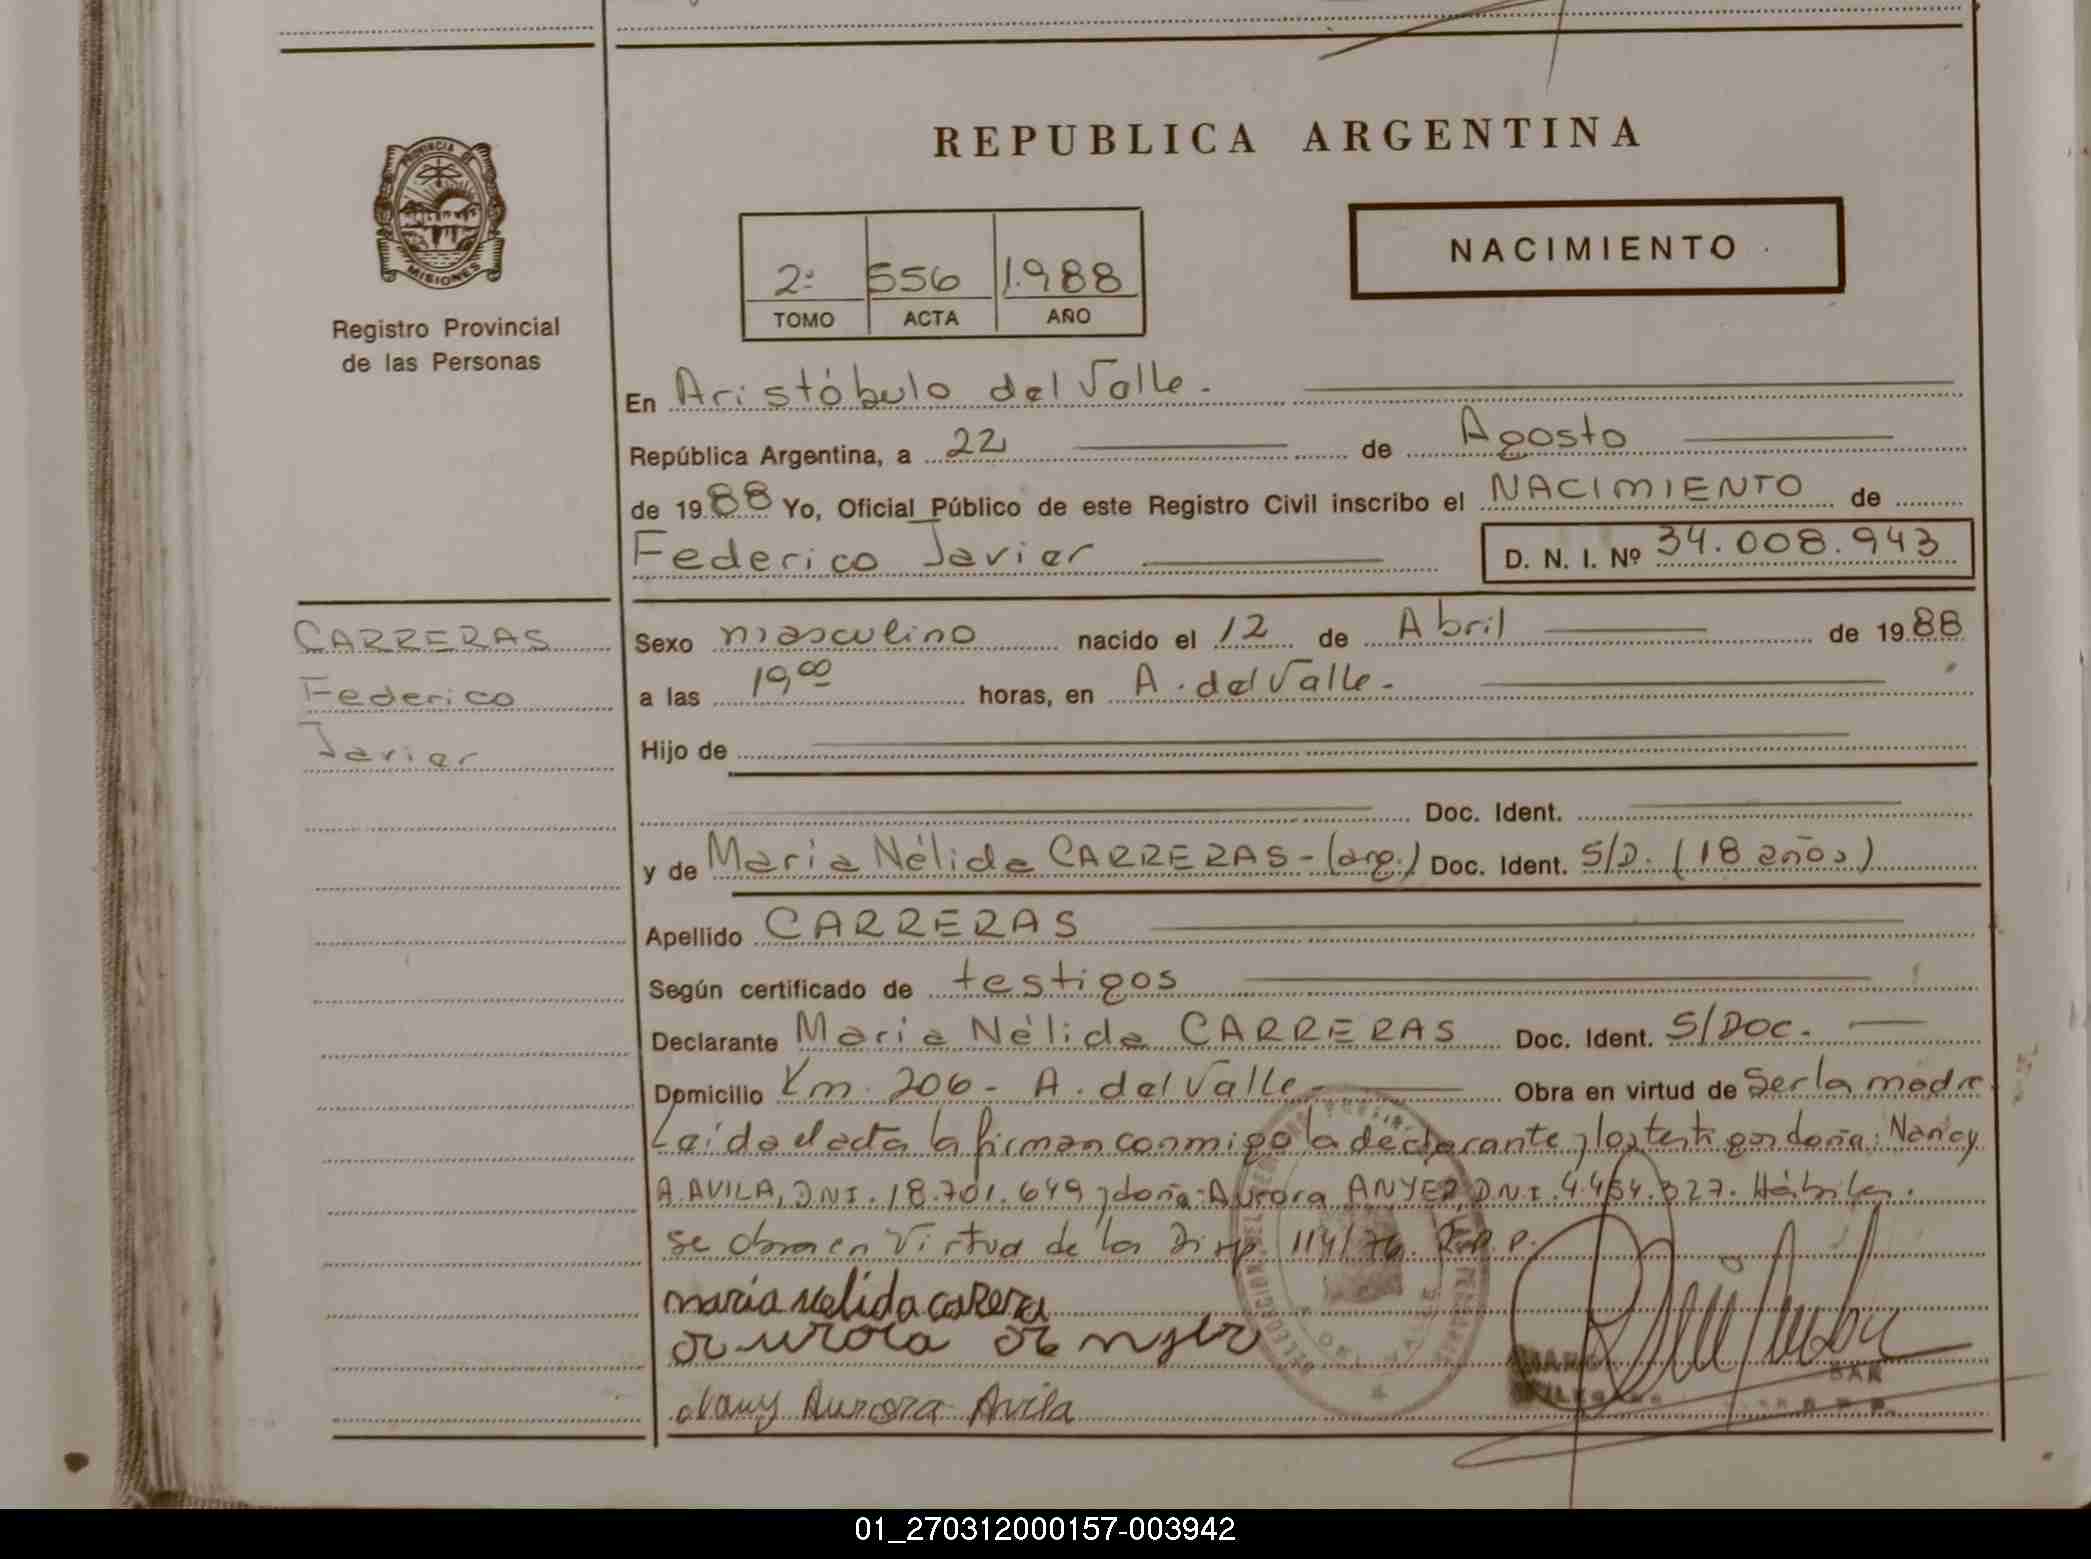 REPUBLICA ARGENTINA
PROVINCIA DE
MISIONES
Registro Provincial
de las Personas
NACIMIENTO
2º 556 1.988
TOMO ACTA AÑO
En Aristóbulo del Valle.
República Argentina, a 22 de Agosto
de 1988 Yo, Oficial Público de este Registro Civil inscribo el NACIMIENTO de
Federico Javier D. N. I. Nº 34.008.943
CARRERAS
Federico
Javier
Sexo masculino nacido el 12 de Abril de 1988
a las 19,00 horas, en A. del Valle.
Hijo de
Doc. Ident.
y de María Nélida CARRERAS-(arg.) Doc. Ident. S/D. (18 años)
Apellido CARRERAS
Según certificado de testigos
Declarante María Nélida CARRERAS Doc. Ident. S/DOC.
Domicilio Km. 206 - A. del Valle Obra en virtud de Ser la madre
Leída el acta la firman conmigo la declarante y los testigos doña: Nancy
A. AVILA, DNI. 18.701.649 y doña: Aurora ANYER, DNI. 4.454.327. Hábiles.
se obra en virtud de la Disp. 114/76. R.P.P.
maria nelida carera
aurora anyer
Nancy Aurora Avila
01_270312000157-003942